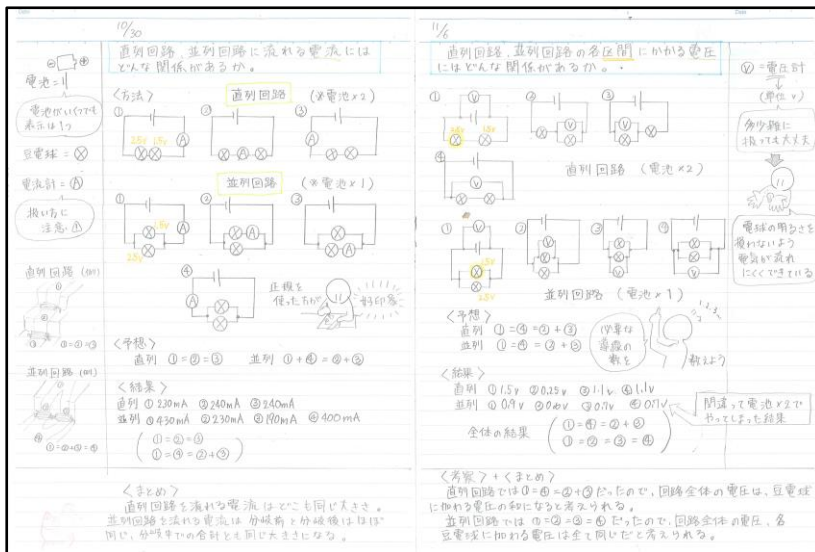 10/30
直列回路、並列回路に流れる電流には
どんな関係があるか。
電池=
電池がいくつでも
表示は1つ
豆電球=Ⓧ
電流計=Ⓐ
扱い方に
注意
直列回路(例)
①=②=③
並列回路(例)
<方法>
直列回路 (※電池×2)
① ② ③
2.5v 1.5v
並列回路 (※電池×1)
① ② ③
1.5v
2.5v
④
定規を
使った方が
好印象
<予想>
直列 ①=②=③ 並列 ①+④=②+③
<結果>
直列 ①230mA ②240mA ③240mA
並列 ①430mA ②230mA ③190mA ④400mA
①=②=③
①=④=②+③
<まとめ>
直列回路を流れる電流はどこも同じ大きさ。
並列回路を流れる電流は分岐前と分岐後はほぼ
同じ、分岐中での合計とも同じ大きさになる。
11/6
直列回路、並列回路の各区間にかかる電圧
にはどんな関係があるか。
Ⓥ=電圧計
(単位 v)
多少雑に
扱っても大丈夫
電球の明るさを
損わないよう
電気が流れ
にくくできている
① ② ③
④
直列回路 (電池×2)
① ② ③ ④
1.5v
2.5v
並列回路 (電池×1)
<予想>
直列 ①=④=②+③
並列 ①=④=②+③
必要な
導線の
数を
数えよう
1,2,3…
<結果>
直列 ①1.5v ②0.25v ③1.1v ④1.1v
並列 ①0.9v ③0.7v ④0.7v
間違って電池×2で
やってしまった結果
全体の結果
①=④=②+③
①=②=③=④
<考察>+<まとめ>
直列回路では①=④=②+③だったので、回路全体の電圧は、豆電球
に加わる電圧の和になると考えられる。
並列回路では①=②=③=④だったので、回路全体の電圧、各
豆電球に加わる電圧は全て同じだと考えられる。